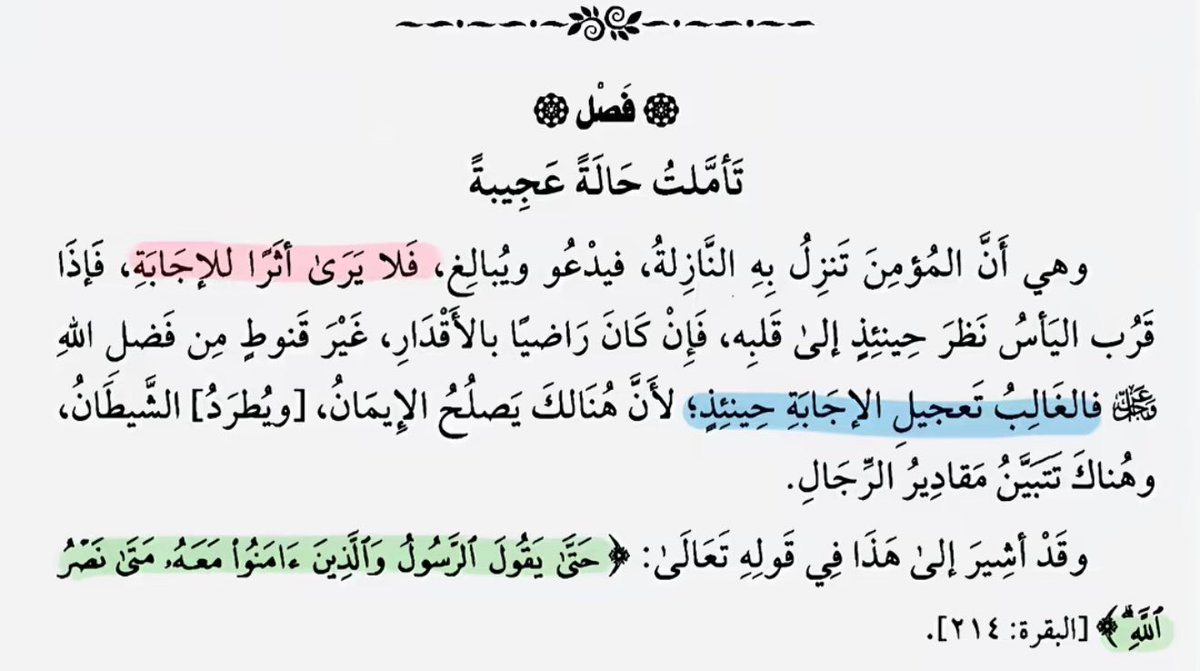 فَصْل
تَأمَّلتُ حَالَةً عَجِيبةً
وهي أَنَّ المُؤمِنَ تَنزِلُ بِهِ النَّازِلةُ، فيدْعُو ويُبالِغ، فَلا يَرَىٰ أثَرًا للإجَابَةِ، فَإذَا
قَرُب اليَأسُ نَظرَ حِينئِذٍ إلىٰ قَلبِه، فَإنْ كَانَ رَاضيًا بالأَقْدَارِ، غَيْرَ قَنوطٍ مِن فَضلِ اللهِ
عَزَّ وَجَلَّ فالغَالِبُ تَعجيلِ الإجَابَةِ حِينَئِذٍ؛ لأَنَّ هُنَالكَ يَصلُحُ الإيمَانُ، [ويُطرَدُ] الشَّيطَانُ،
وهُناكَ تَتَبيَّنُ مَقادِيرُ الرِّجَالِ.
وقَدْ أشِيرَ إلىٰ هَذَا فِي قَولِهِ تَعَالَىٰ: ﴿حَتَّىٰ يَقُولَ ٱلرَّسُولُ وَٱلَّذِينَ ءَامَنُواْ مَعَهُۥ مَتَىٰ نَصْرُ
ٱللَّهِۗ﴾ [البقرة: ٢١٤].